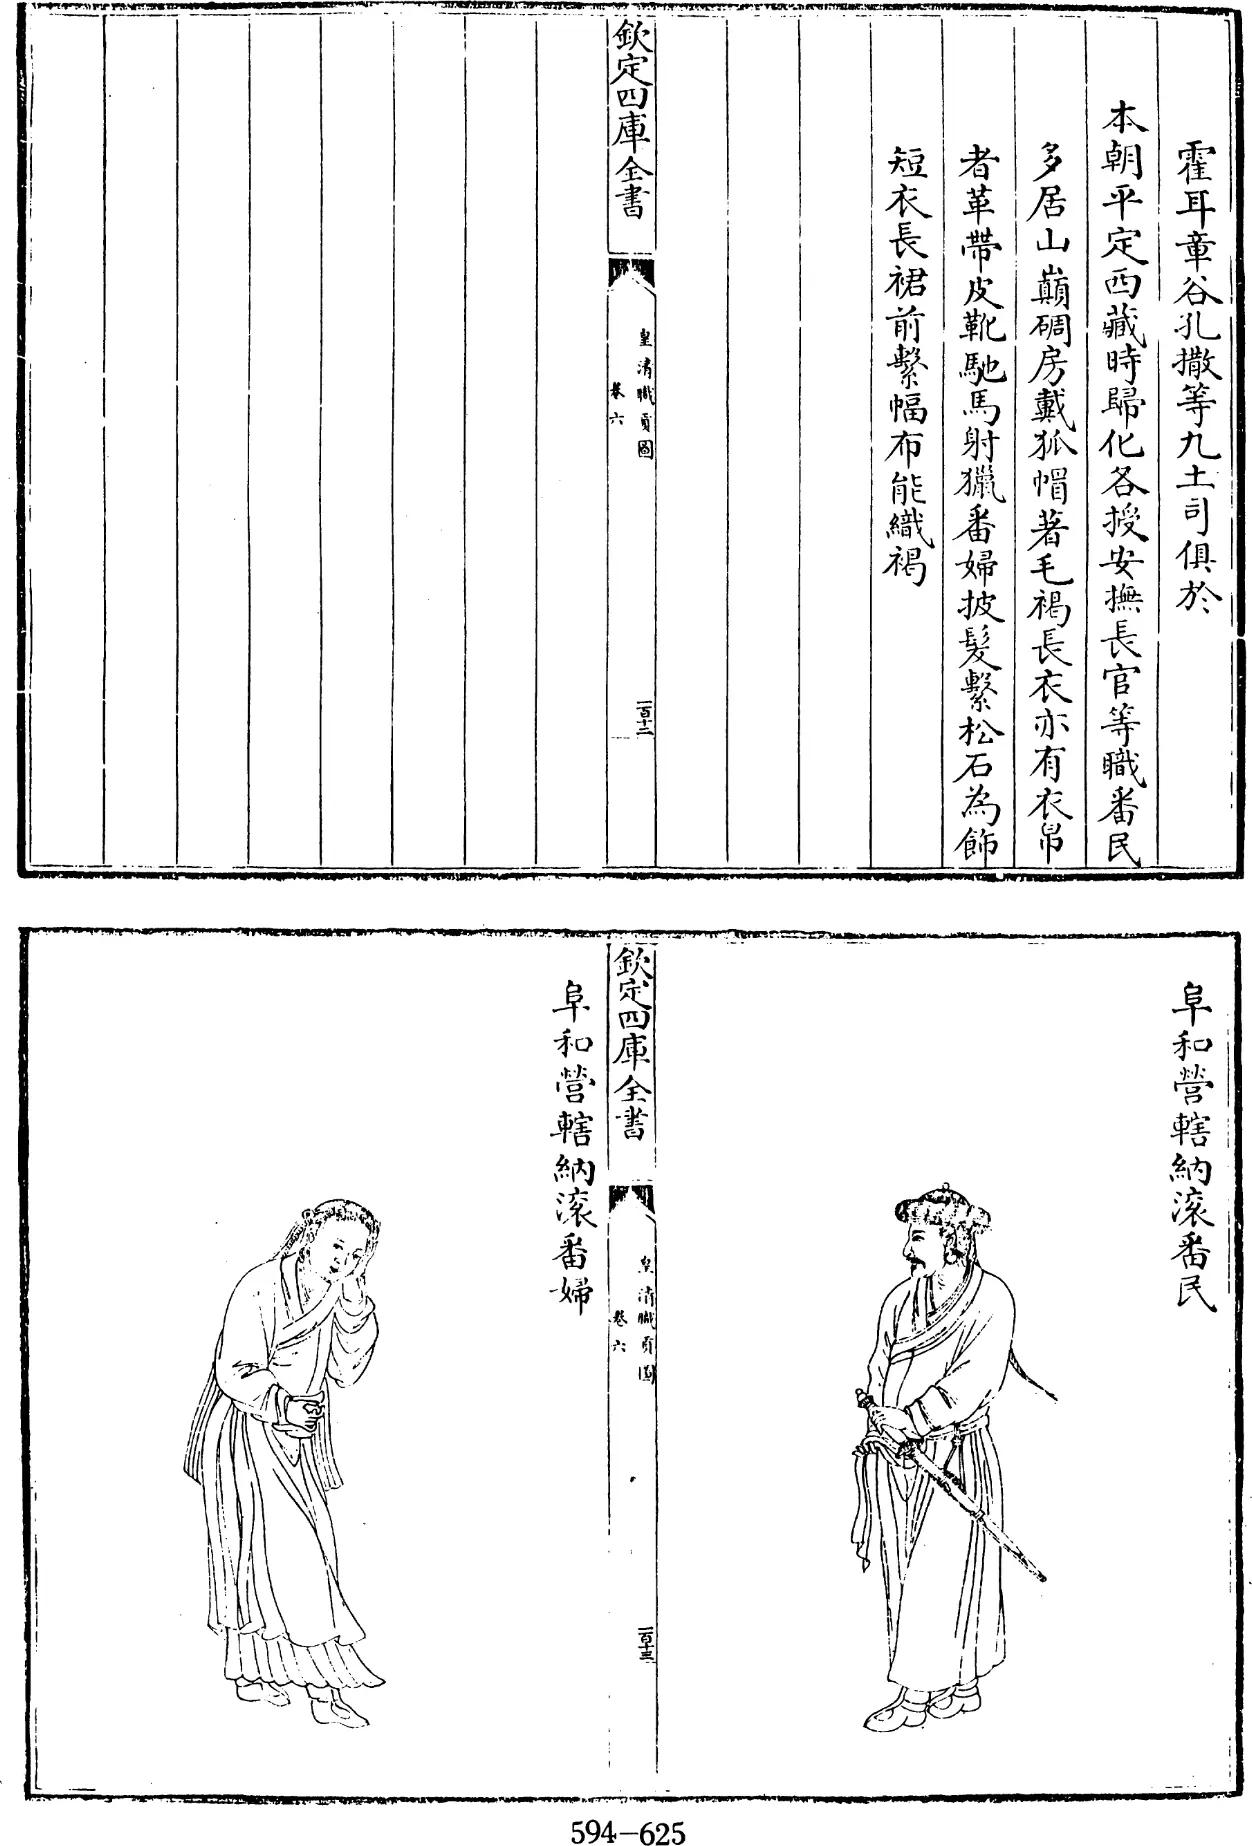 霍耳章谷孔撒等九土司俱於
本朝平定西藏時歸化各授安撫長官等職番民
多居山巔碉房戴狐帽著毛褐長衣亦有衣帛
者革帶皮靴馳馬射獵番婦披髮繫松石為飾
短衣長裙前繫幅布能織褐
欽定四庫全書
皇清職貢圖
卷六
一百十二
阜和營轄納滾番民
欽定四庫全書
皇清職貢圖
卷六
一百十三
阜和營轄納滾番婦
594-625